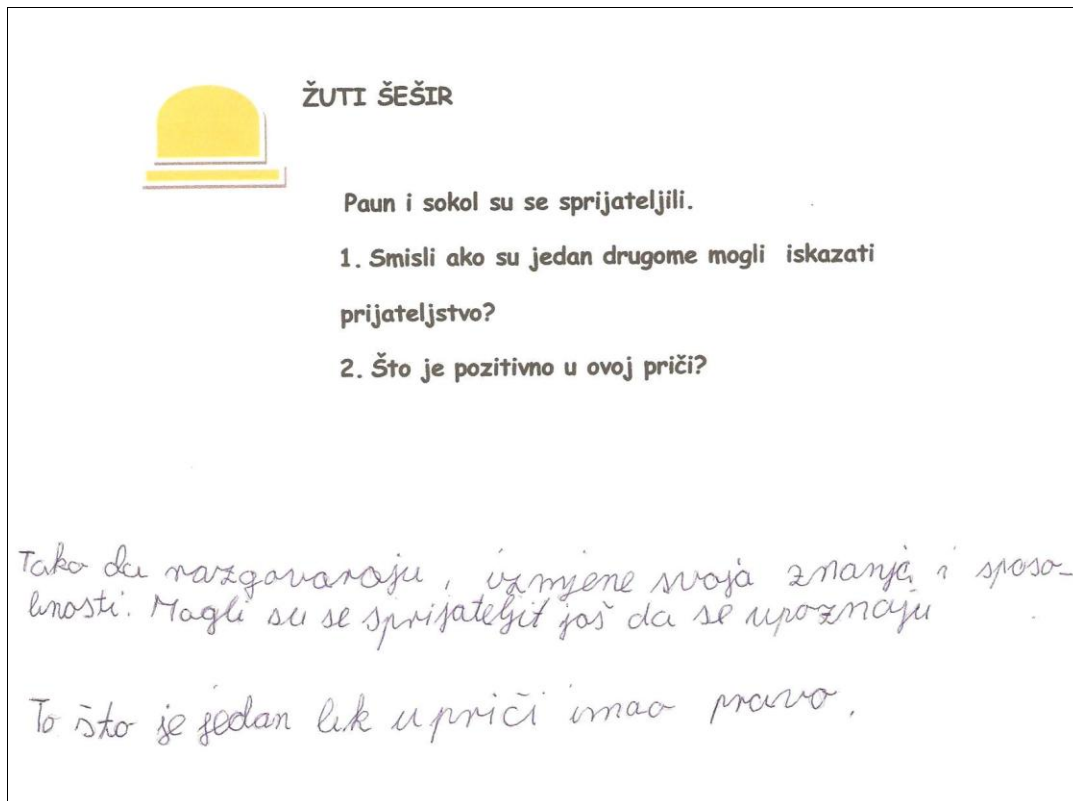 ŽUTI ŠEŠIR
Paun i sokol su se sprijateljili.
1. Smisli ako su jedan drugome mogli iskazati
prijateljstvo?
2. Što je pozitivno u ovoj priči?
Tako da razgovaraju, izmjene svoja znanja i sposo-
bnosti. Mogli su se sprijateljit još da se upoznaju
To što je jedan lik u priči imao pravo.